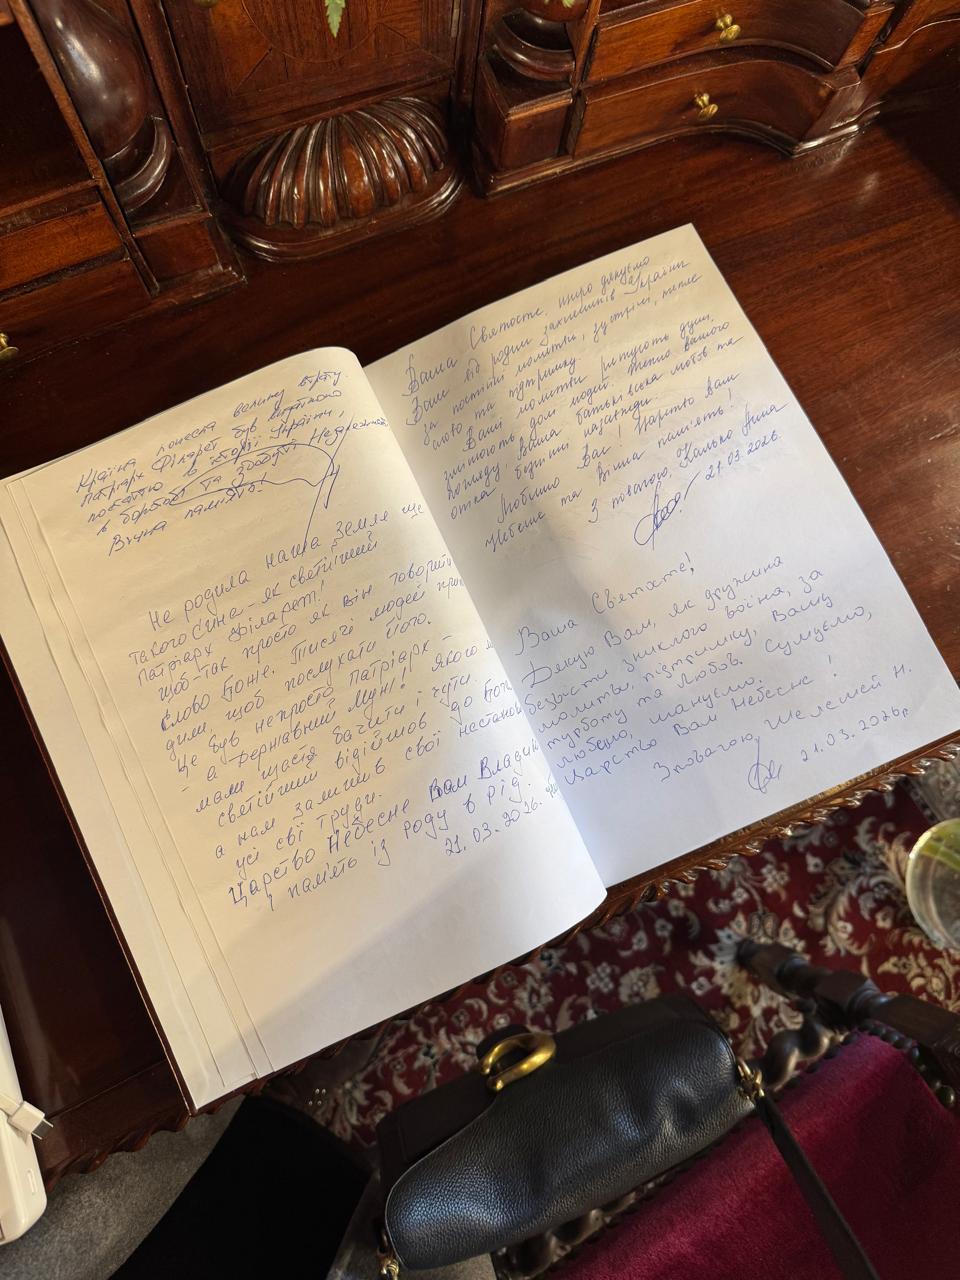 Країна понесла велику втрату.
Патріарх Філарет був визначною
постаттю в історії України,
в боротьбі та здобутті Незалежності
Вічна память!
Не родила наша Земля ще
такого Сина - як святіший
Патріарх Філарет!
Щоб так просто як він говорити
Слово Боже. Тисячі людей
щоб послухати Його.
Це був непросто Патріарх -
а державний Муж! Якого
мали щастя бачити і чути.
світіший відійшов до Бога
а нам залишив свої настанови
усі свої труди.
Царство Небесне Вам Владико
і память із роду в рід.
21.03.2026.
Ваша Святосте, щиро дякуємо
Вам від родин Захисників України
за постійні молитви, зустрічі, тепле
слово та підтримку.
Ваші молитви рятують душі,
змінюють долі людей. Тепло вашого
погляду! Ваша батьківська любов та
опіка безцінні назавжди.
Любимо Вас! Царство вам
Небесне та вічна память!
З повагою, Анна
21.03.2026.
Ваша Святосте!
Дякую Вам, як дружина
безвісти зниклого воїна, за
молитви, підтримку, Вашу
турботу та любов. Сумуємо,
любимо, шануємо.
Царство Вам Небесне!
З повагою, Шелемей Н.
21.03.2026р